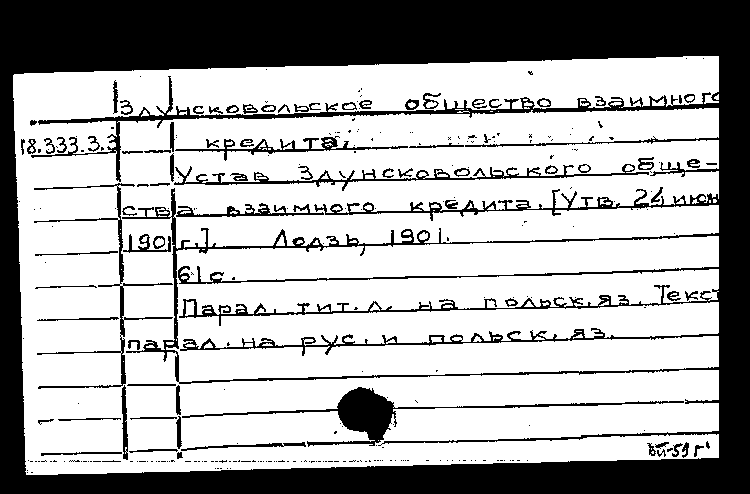 Здунсковольское общество взаимного
18.333.3.3 кредита.
Устав Здунсковольского обще-
ства взаимного кредита. [Утв. 24 июн
1901 г.]. Лодзь, 1901.
61 с.
Парал. тит. л. на польск. яз. Текст
парал. на рус. и польск. яз.